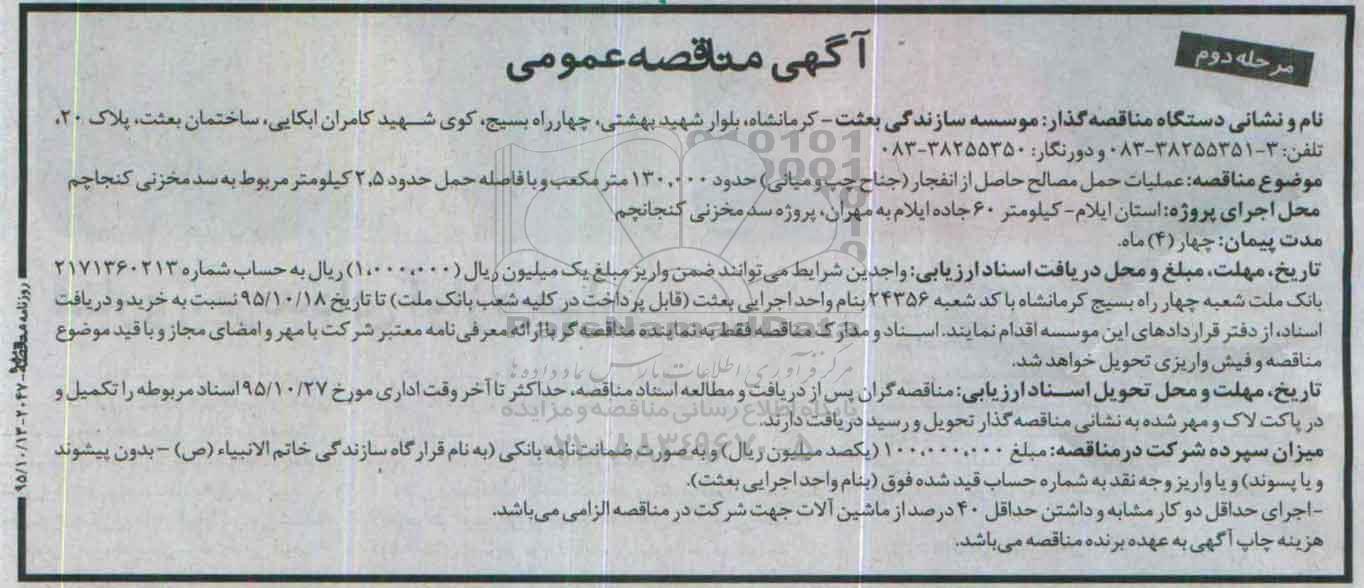 مرحله دوم
آگهی مناقصه عمومی
نام و نشانی دستگاه مناقصه گذار: موسسه سازندگی بعثت - کرمانشاه، بلوار شهید بهشتی، چهارراه بسیج، کوی شهید کامران ابکایی، ساختمان بعثت، پلاک ۲۰،
تلفن: ۳-۳۸۲۵۵۳۵۱-۰۸۳ و دورنگار: ۳۸۲۵۵۳۵۰-۰۸۳
موضوع مناقصه: عملیات حمل مصالح حاصل از انفجار (جناح چپ و میانی) حدود ۱۳۰,۰۰۰ متر مکعب و با فاصله حمل حدود ۲,۵ کیلومتر مربوط به سد مخزنی کنجاچم
محل اجرای پروژه: استان ایلام - کیلومتر ۶۰ جاده ایلام به مهران، پروژه سد مخزنی کنجانچم
مدت پیمان: چهار (۴) ماه.
تاریخ، مهلت، مبلغ و محل دریافت اسناد ارزیابی: واجدین شرایط می توانند ضمن واریز مبلغ یک میلیون ریال (۱,۰۰۰,۰۰۰) ریال به حساب شماره ۲۱۷۱۳۶۰۲۱۳
بانک ملت شعبه چهار راه بسیج کرمانشاه با کد شعبه ۲۴۳۵۶ بنام واحد اجرایی بعثت (قابل پرداخت در کلیه شعب بانک ملت) تا تاریخ ۹۵/۱۰/۱۸ نسبت به خرید و دریافت
اسناد، از دفتر قراردادهای این موسسه اقدام نمایند. اسناد و مدارک مناقصه فقط به نماینده مناقصه گر با ارائه معرفی نامه معتبر شرکت با مهر و امضای مجاز و با قید موضوع
مناقصه و فیش واریزی تحویل خواهد شد.
تاریخ، مهلت و محل تحویل اسناد ارزیابی: مناقصه گران پس از دریافت و مطالعه اسناد مناقصه، حداکثر تا آخر وقت اداری مورخ ۹۵/۱۰/۲۷ اسناد مربوطه را تکمیل و
در پاکت لاک و مهر شده به نشانی مناقصه گذار تحویل و رسید دریافت دارند.
میزان سپرده شرکت در مناقصه: مبلغ ۱۰۰,۰۰۰,۰۰۰ (یکصد میلیون ریال) و به صورت ضمانت نامه بانکی (به نام قرارگاه سازندگی خاتم الانبیاء (ص) - بدون پیشوند
و یا پسوند) و یا واریز وجه نقد به شماره حساب قید شده فوق (بنام واحد اجرایی بعثت).
-اجرای حداقل دو کار مشابه و داشتن حداقل ۴۰ درصد از ماشین آلات جهت شرکت در مناقصه الزامی می باشد.
هزینه چاپ آگهی به عهده برنده مناقصه می باشد.
روزنامه مناقصه-۲۰۴۷-۹۵/۱۰/۱۳
مرکز فرآوری اطلاعات پارس نماد داده ها
پایگاه اطلاع رسانی مناقصه و مزایده